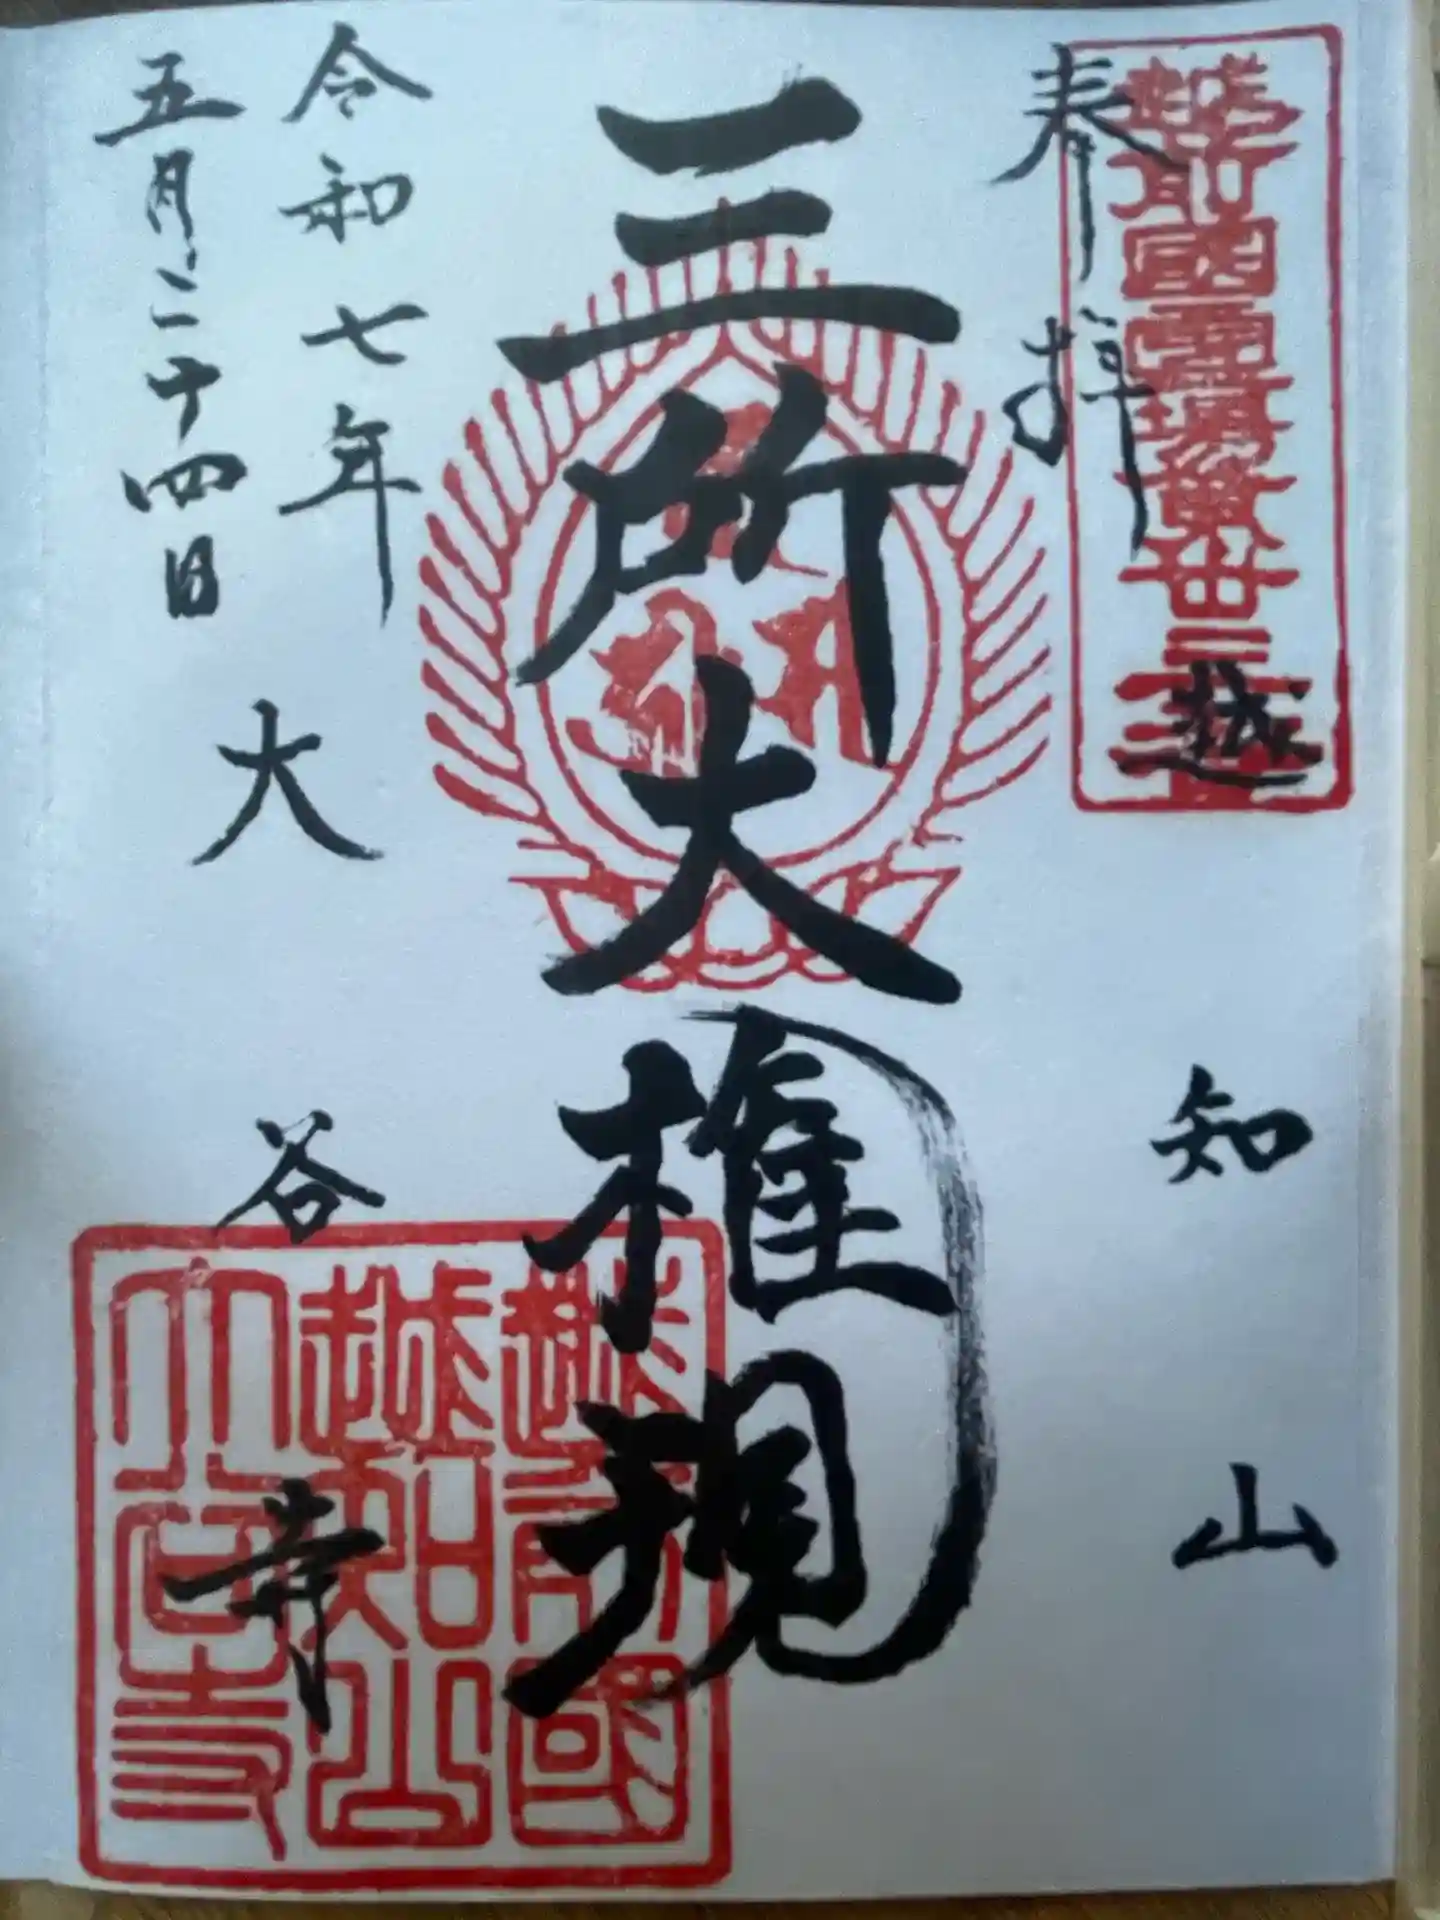 越前國
奉拝
越知山
三所大権現
令和七年
五月二十四日
大谷寺
越前國
越知山
大谷寺